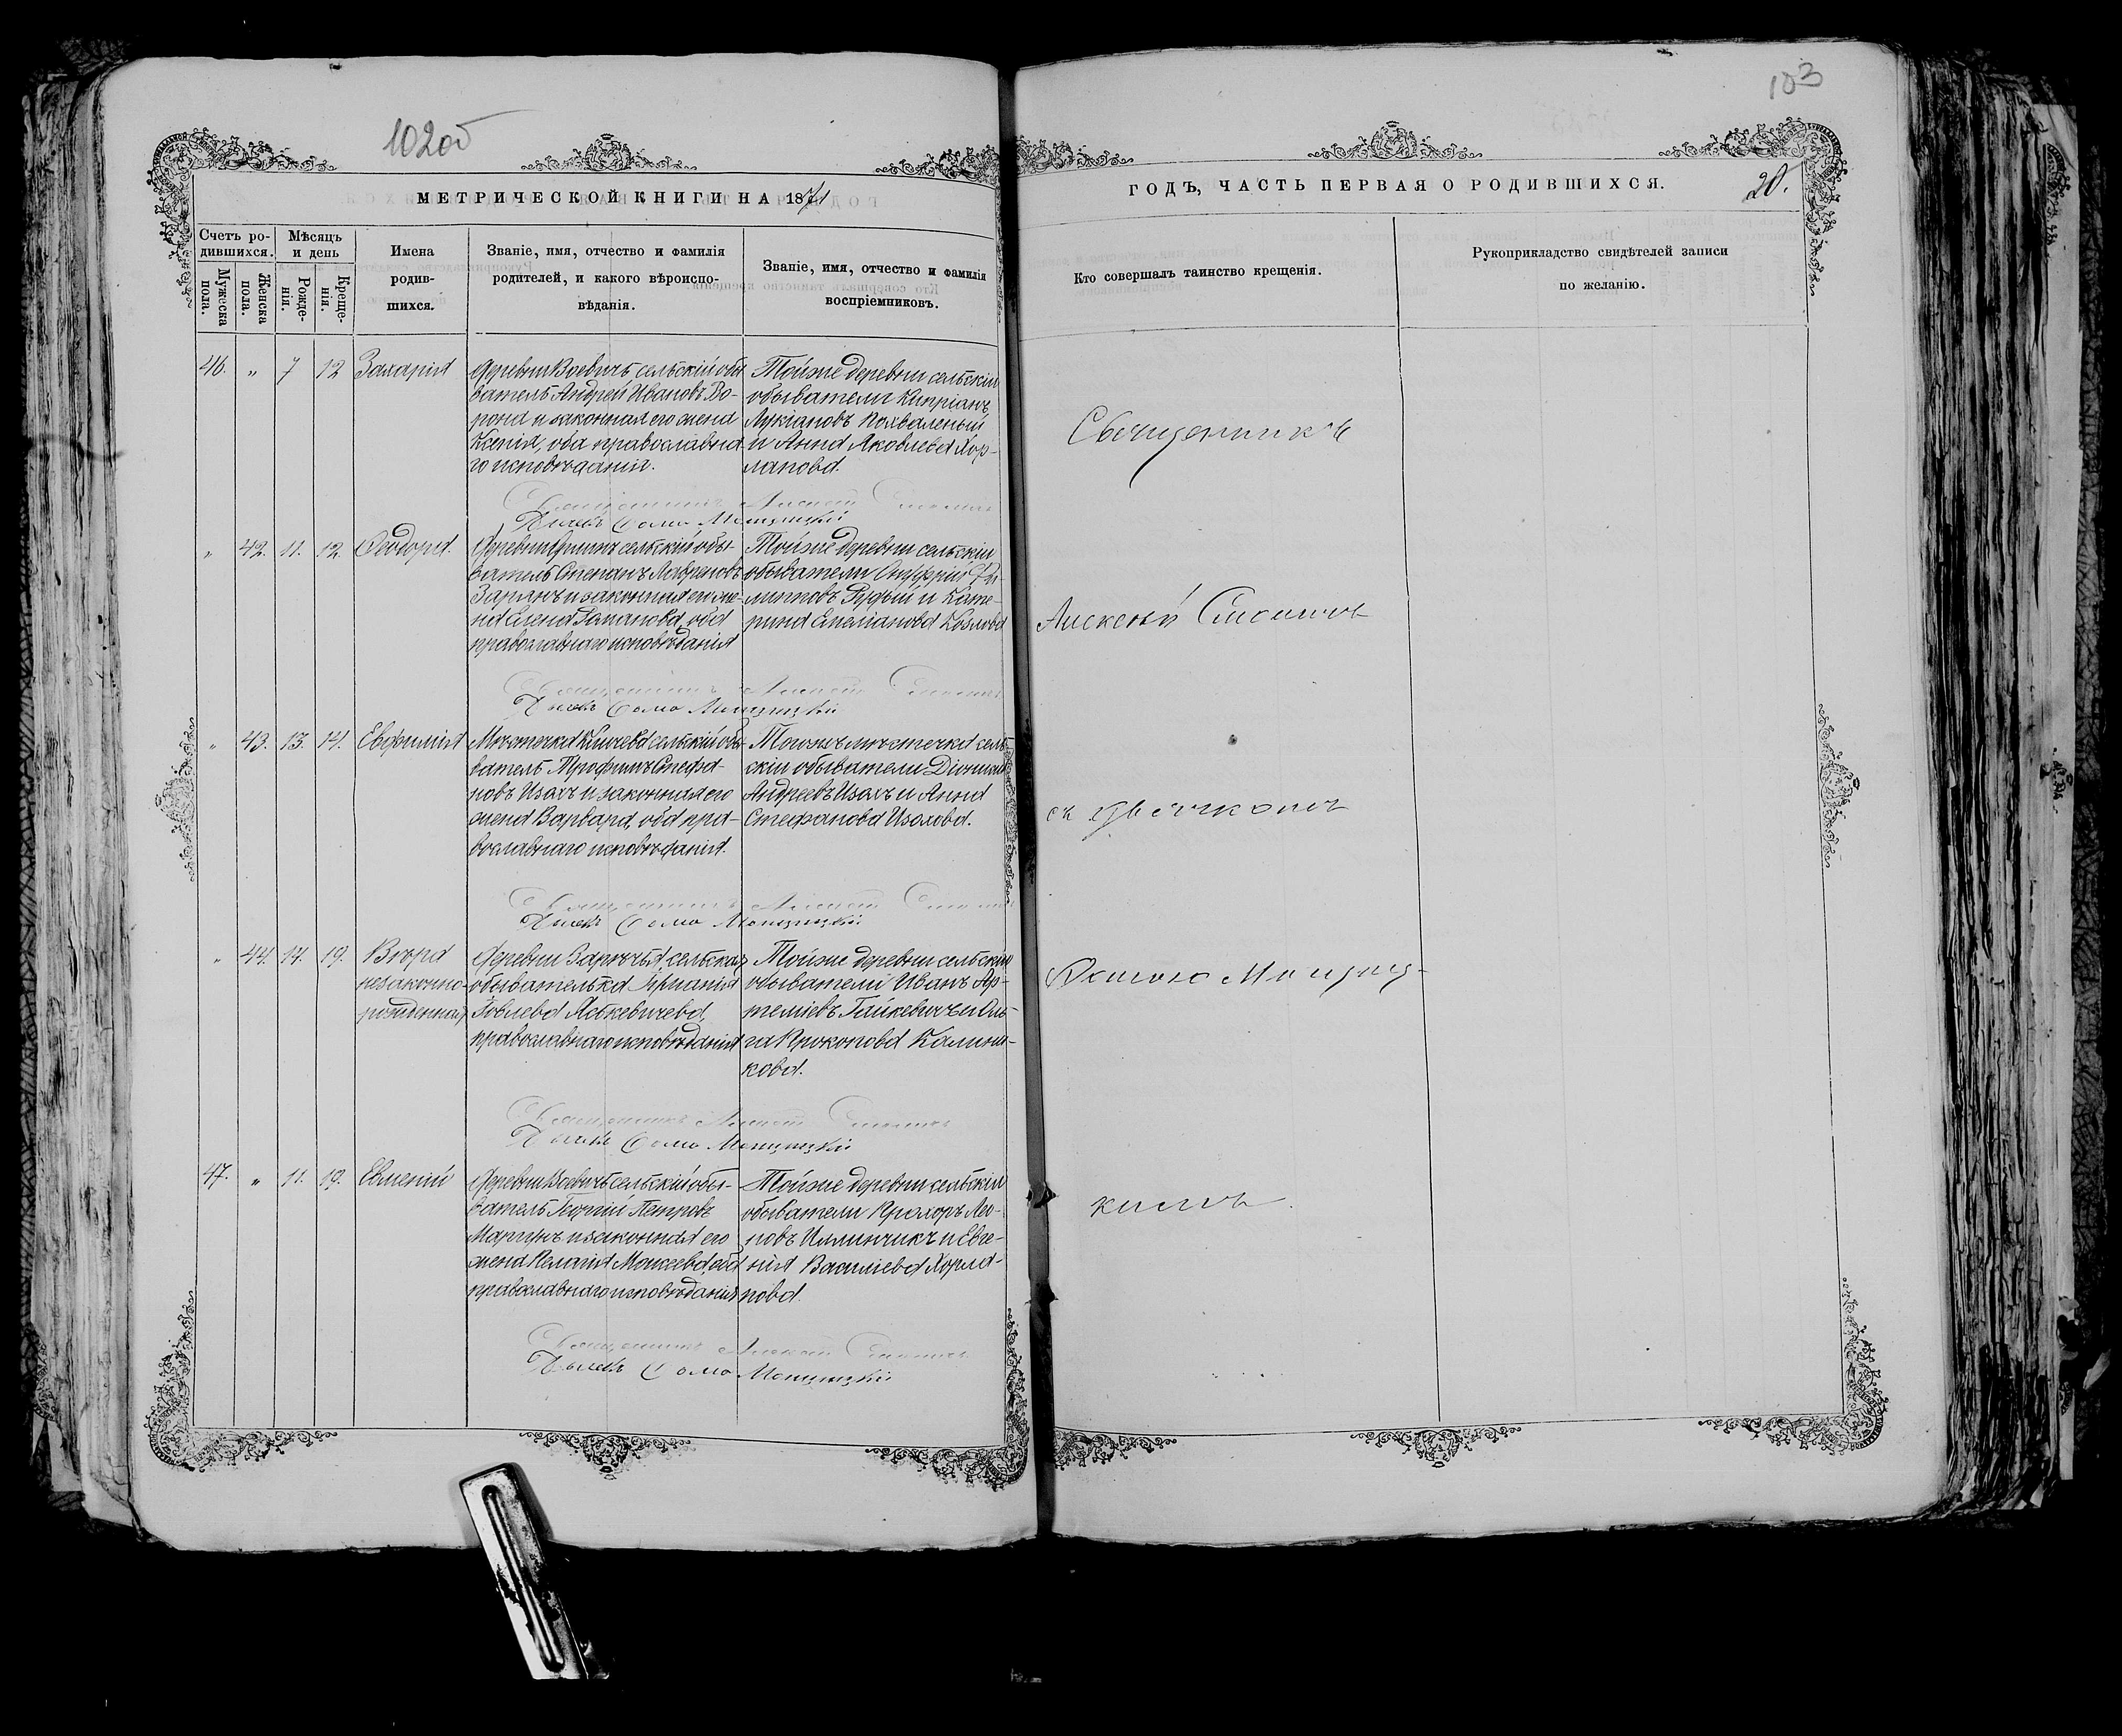 102об
103
МЕТРИЧЕСКОЙ КНИГИ НА 1871
ГОДЪ, ЧАСТЬ ПЕРВАЯ О РОДИВШИХСЯ.
20.
Счетъ ро-
дившихся.
Мужеска
пола.
Женска
пола.
Мѣсяцъ
и день
Рожде-
нія.
Креще-
нія.
Имена
родив-
шихся.
Званіе, имя, отчество и фамилія
родителей, и какого вѣроиспо-
вѣданія.
Званіе, имя, отчество и фамилія
воспріемниковъ.
Кто совершалъ таинство крещенія.
Рукоприкладство свидѣтелей записи
по желанію.
46. „ 7 12 Захарія
Деревни Воевичъ сельскій обы
ватель Андрей Ивановъ Во-
рона и законная его жена
Ксенія, оба православна
го исповѣданія.
Тойже деревни сельскіи
обыватели Кипріанъ
Лукіановъ Похваленый
и Анна Яковлева Хор-
ланова.
Священникъ Алексѣй
Ѳома Мощицкій
„ 42. 11. 12. Ѳеодора.
Деревни сельскій обы-
ватель Степанъ
и законная его же-
на Елена оба
православнаго исповѣданія
Тойже деревни сельскіи
обыватели Онуфрій Фи-
липповъ Рудый и Кате-
рина Емеліанова Козлова
Священникъ Алексѣй
Ѳома Мощицкій
„ 43. 13. 14. Евфимія
Мѣстечка Кличева сельскій обы-
ватель Трофимъ Стефа-
новъ Изахъ и законная его
жена Варвара, оба пра-
вославнаго исповѣданія.
Тогожъ мѣстечка сель-
скіи обыватели Діонисій
Андреевъ Изахъ и Анна
Стефанова Изохова.
Священникъ Алексѣй
Ѳома Мощицкій
„ 44. 14. 19. Вѣра
незаконно-
рожденная
Деревни Зарѣчья сельская
обывателька
Іовлева Яськевичева,
православнаго исповѣданія
Тойже деревни сельскіи
обыватели Иванъ Ар-
теміевъ Гайкевичъ и Оль-
га Прокопова Калини-
кова.
Священникъ Алексѣй
Ѳома Мощицкій
47. „ 11. 19. Евменій
Деревни Воевичъ сельскій обы-
ватель Георгій Петровъ
и законная его
жена Пелагія Моисеева, оба
православнаго исповѣданія
Тойже деревни сельскіи
обыватели Прохоръ Лео-
новъ Иллинчикъ и Евге-
нія Василіева Хорла-
нова.
Священникъ Алексѣй
Ѳома Мощицкій
Священникъ
Алексѣй
съ дьячкомъ
Ѳомою Мощиц-
кимъ.